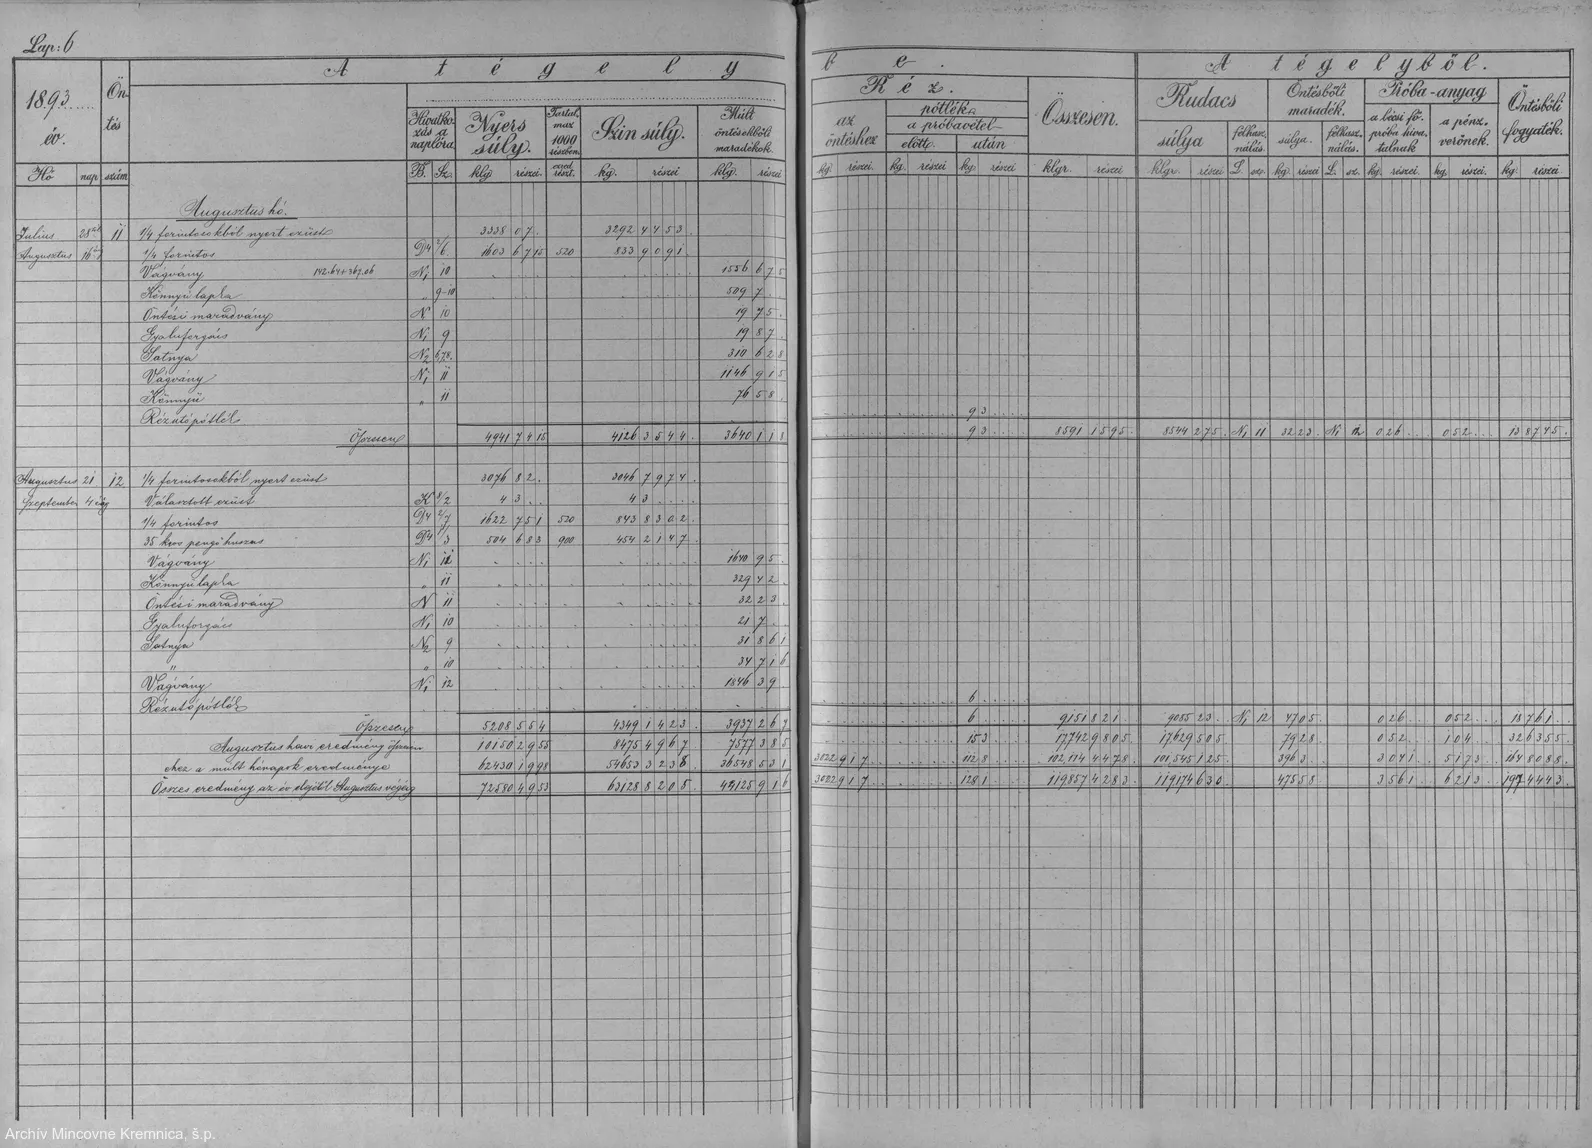 Lap: 6
A tégely be.
A tégelyből.
1893 év.
Öntés
Réz.
Összesen.
Rudacs
Öntésbőli maradék.
Próba-anyag
Öntésbőli fogyaték.
Hivatkozás a naplóra.
Nyers súly.
Tartalmaz 1000 részben.
Szín súly.
Múlt öntésekbőli maradékok.
az öntéshez
pótlék
a próbavétel
előtt
után
súlya
felhasználás.
súlya.
felhasználás.
a bécsi fő próba hivatalnak
a pénzverőnek.
Hó nap szám B. Sz. klg részei ezred részt. kg. részei klg. részei
kg. részei kg. részei kg részei klgr. részei klgr. részei L. sz. kg részei L. sz. kg. részei. kg. részei. kg. részei
Augusztus hó.
Julius 28 11 1/4 forintosokból nyert ezüst 3338 07. 3292 4453
Augusztus 16 1/4 forintos D4 2/6 1603 6715 520 833 9091
Vágvány 142.64+367.06 N1 10 1556 675
Könnyű lapka " 9-10 509 7
Öntési maradvány N 10 19 75
Gyaluforgács N1 9 19 87
Satnya N2 6,7,8. 310 628
Vágvány N1 11 1146 915
Könnyű " 11 76 58
Rézutópótlék 93
Összesen 4941 7415 4126 3544 3640 118 93 8591 1595 8544 275 N1 11 3223 N1 12 026 052 138745
Augusztus 21 12 1/4 forintosokból nyert ezüst 3076 82 3046 7974
Szeptember 4 ig Választott ezüst K 8/2 43 43
1/4 forintos D4 2/7 1622 751 520 843 8302
35 kros pengő huszas D4 1/3 504 683 900 454 2147
Vágvány N1 11 1640 95
Könnyű lapka " 11 329 42
Öntési maradvány N 11 32 23
Gyaluforgács N1 10 21 7
Satnya N2 9 31 861
" " 10 34 716
Vágvány N1 12 1846 39
Rézutópótlék 6
Összesen 5208 554 4349 1423 3937 267 6 9151 821 9085 23 N1 12 4705 026 052 18761
Augusztus havi eredmény összesen 10150 2955 8475 4967 7577 385 153 17742 9805 17629 505 7928 052 104 326355
ehez a mult hónapok eredménye 62430 1998 54653 3238 36548 531 3022 917 1128 102,114 4478 101,545 125 3963 3041 5173 1648088
Összes eredmény az év elejétől Augusztus végéig 72580 4953 63128 8205 44125 916 3022 917 1281 119857 4283 119174 630 47558 3561 6213 1974443
Archív Mincovne Kremnica, š.p.